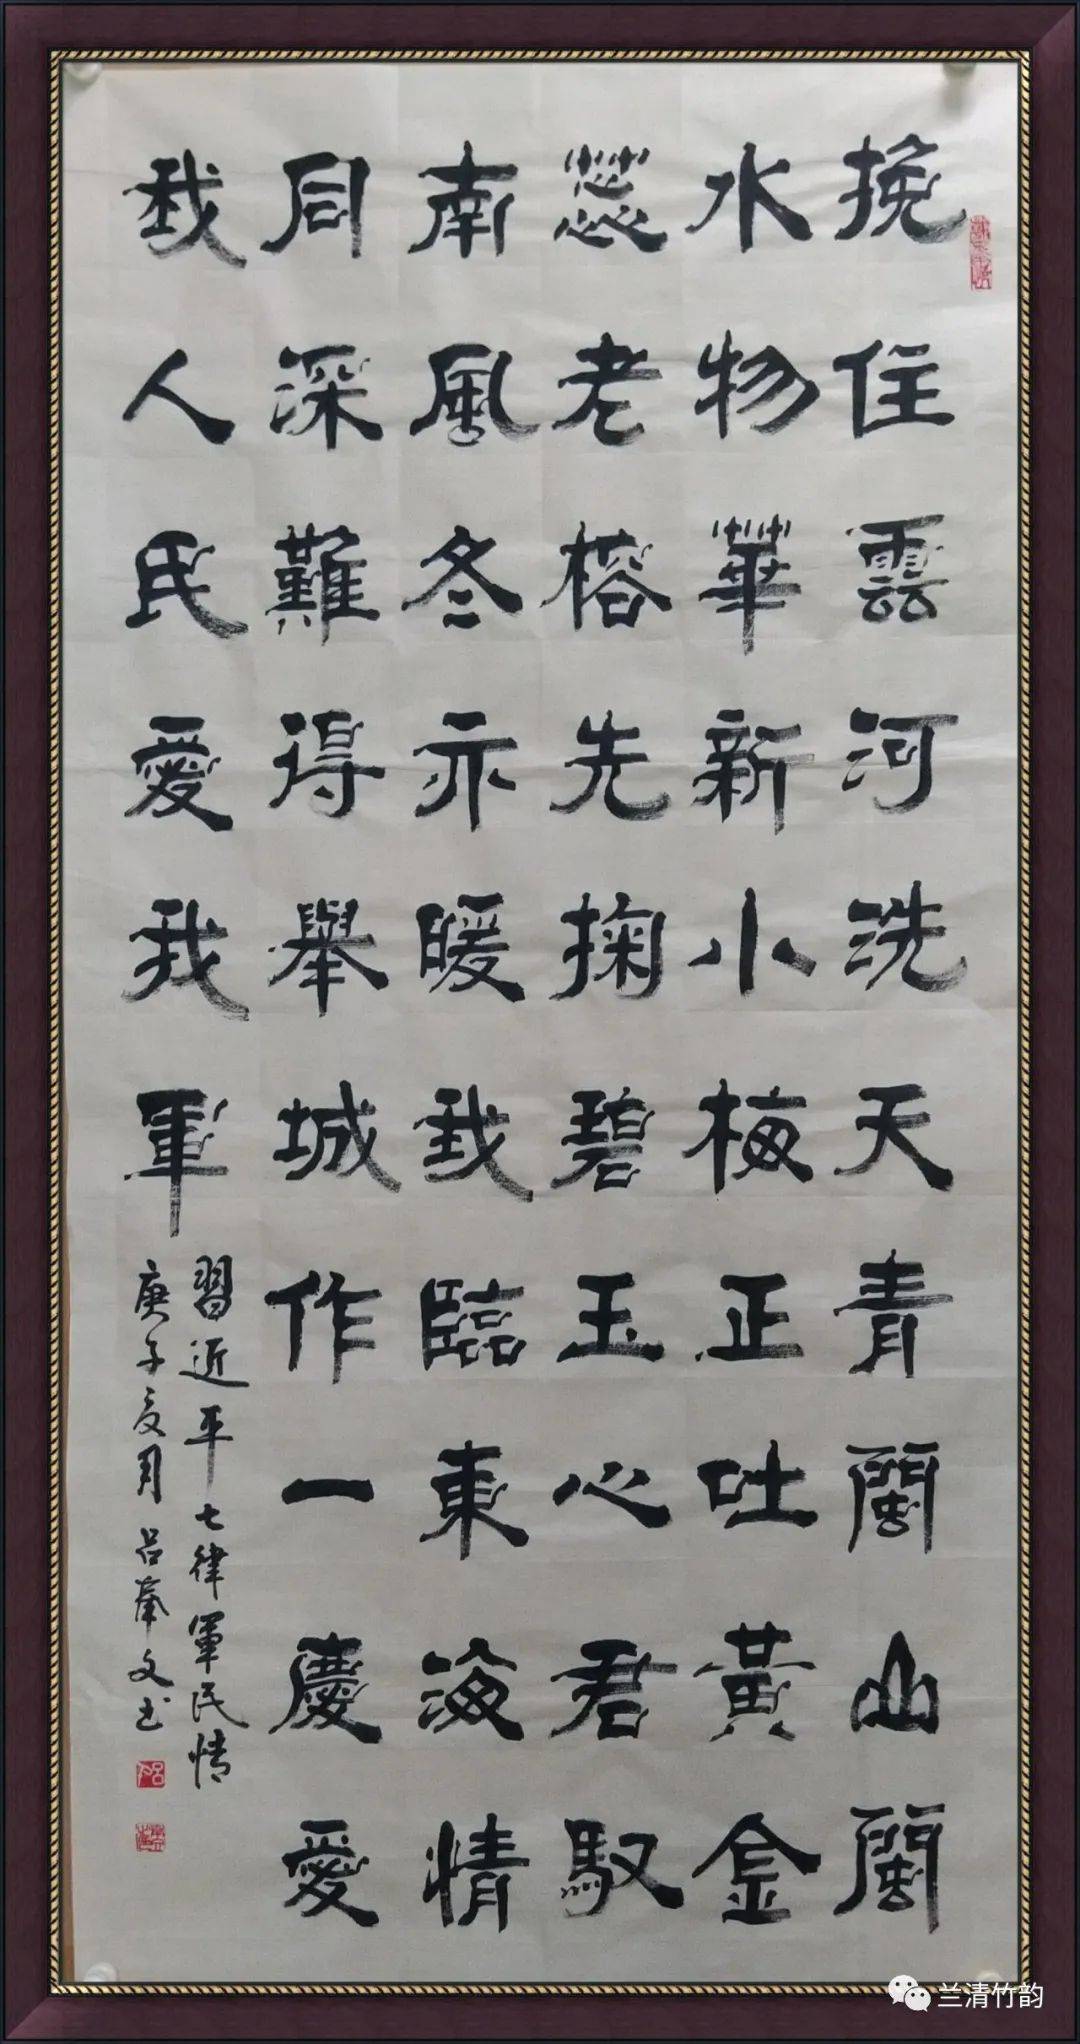 挽住雲河洗天青閩山閩
水物華新小梅正吐黃金
蕊老榕先掬碧玉心君馭
南風冬亦暖我臨東海情
同深難得舉城作一慶愛
我人民愛我軍
習近平七律軍民情
庚子夏月 呂奉文書
兰清竹韵